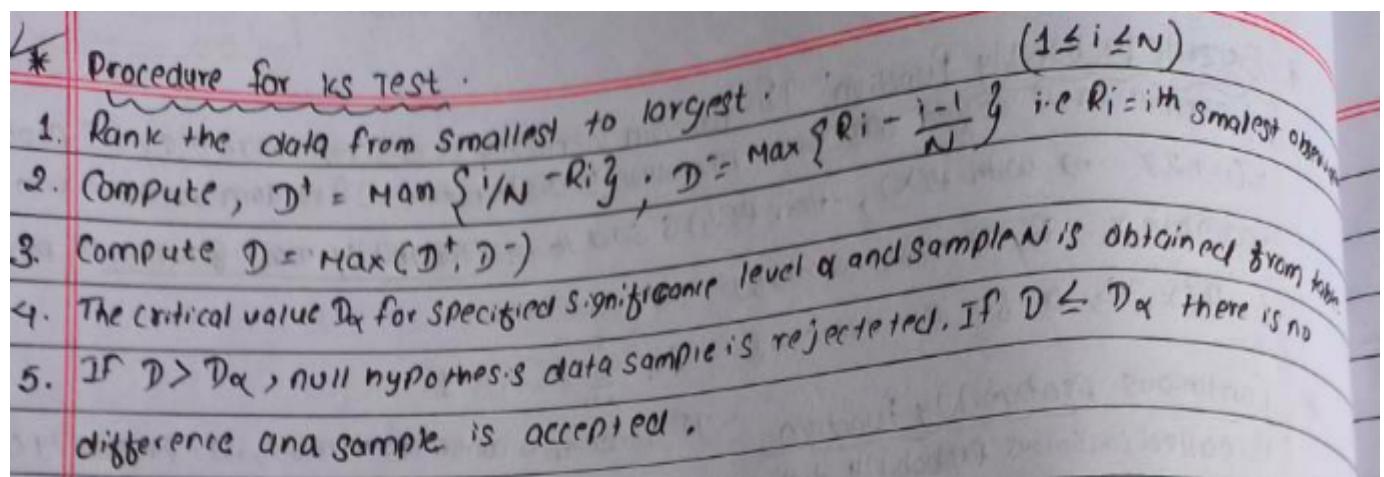 * Procedure for KS Test.
1. Rank the data from smallest to largest. (1 ≤ i ≤ N)
2. Compute, D⁺ = Man {i/N - Ri}, D⁻ = Max {Ri - i-1/N} i.e Ri = ith smalest
3. Compute D = Max (D⁺, D⁻)
4. The critical value Dα for specified significance level α and sample N is obtained from
5. If D > Dα, null hypothesis data sample is rejecteted. If D ≤ Dα there is no
difference and sample is accepted.